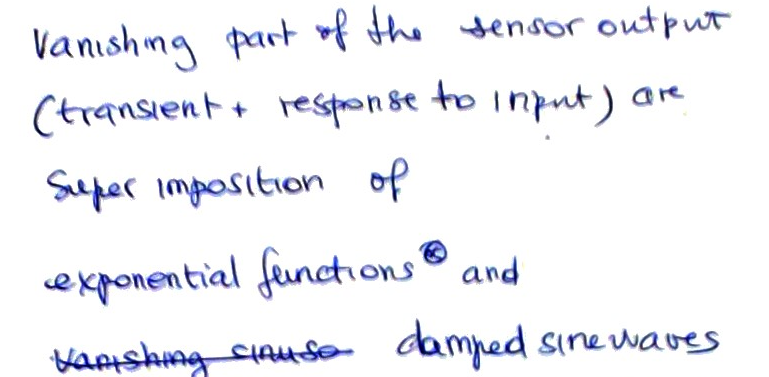 Vanishing part of the sensor output
(transient + response to input) are
Super imposition of
exponential functions and
Vanishing sinuso damped sinewaves